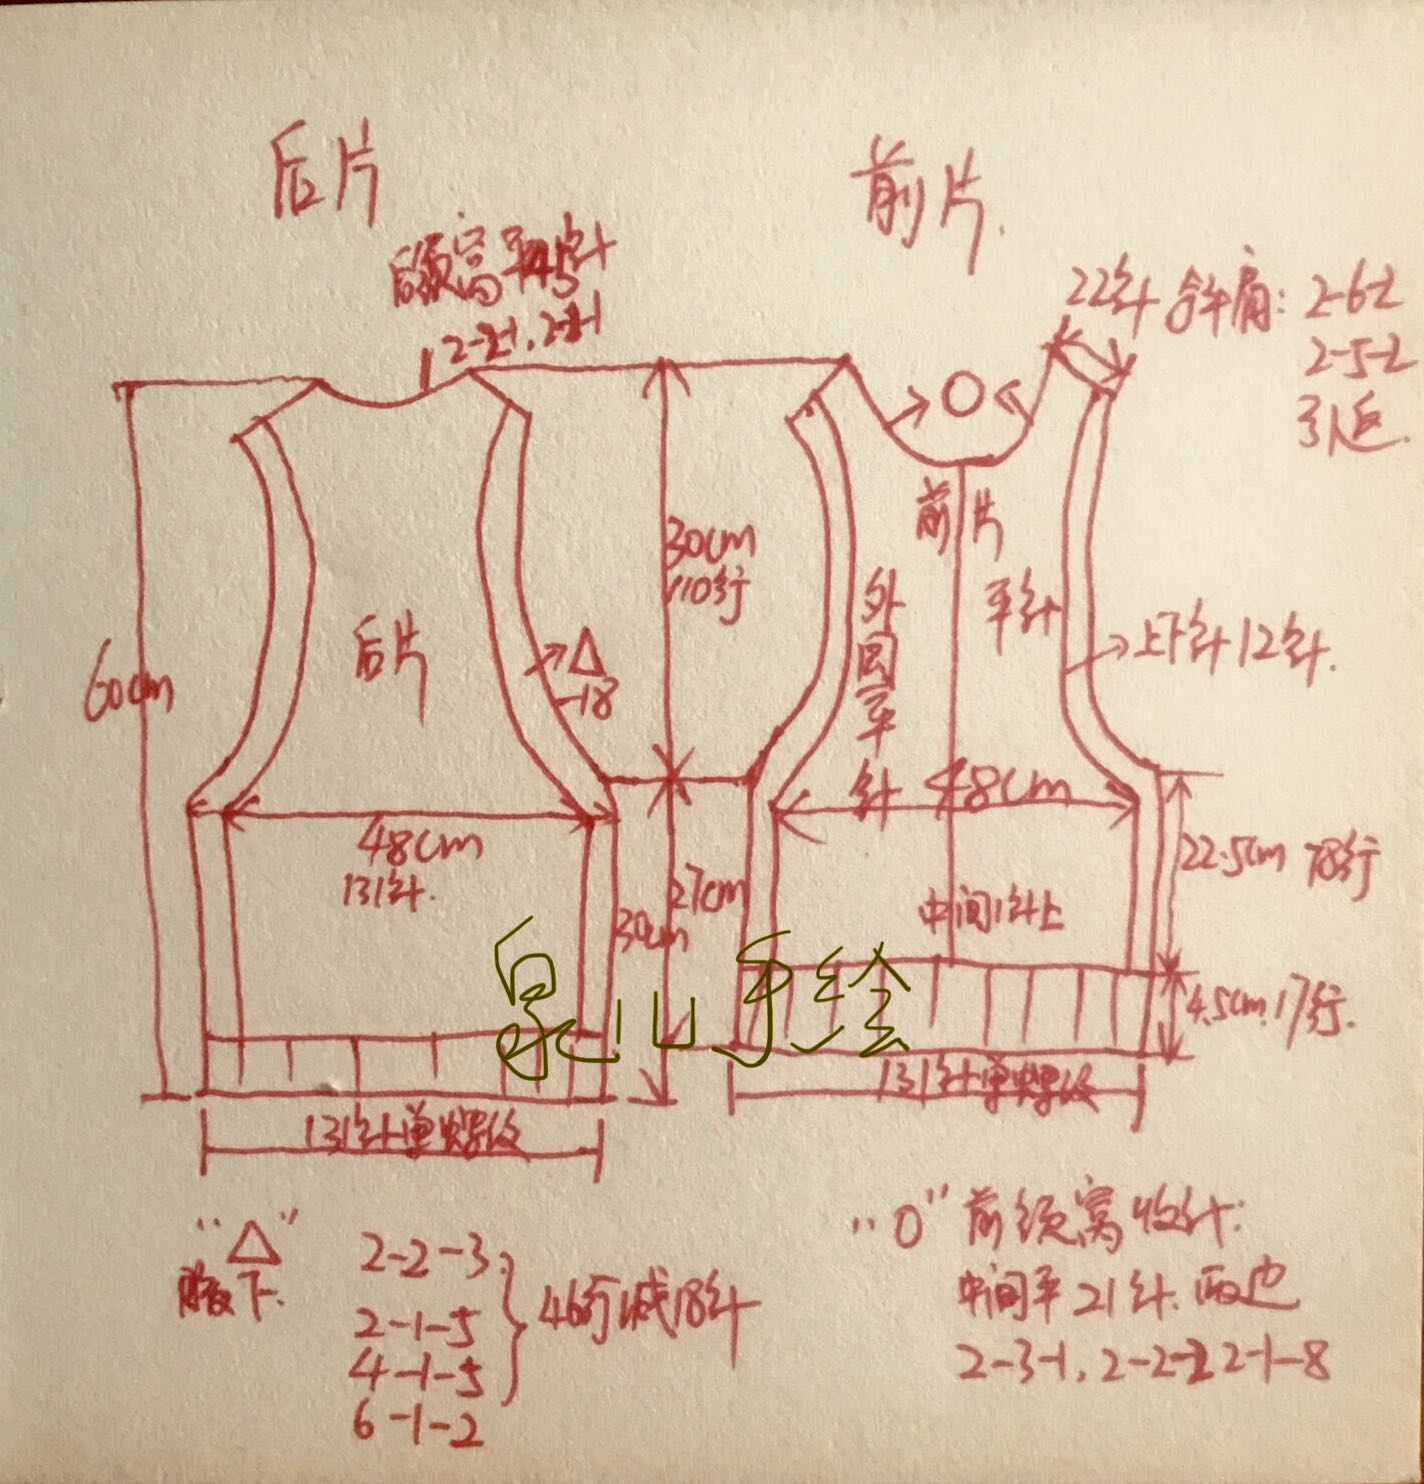 后片
前片.
后领窝平45针
2-2-1.2-1-1
22针 斜肩: 2-6-2
2-5-2
引返.
30cm
110行
前片
外圆平针
平针
后片
△
-18
上下针12针.
60cm
48cm
131针.
48cm
22.5cm 78行
27cm
30cm
中间1针上
泉儿手绘
4.5cm.17行.
131针单螺纹
131针单螺纹
“△”
腋下.
2-2-3
2-1-5
4-1-5
6-1-2
46行减18针
“O”前领窝收针:
中间平21针.两边
2-3-1.2-2-2 2-1-8